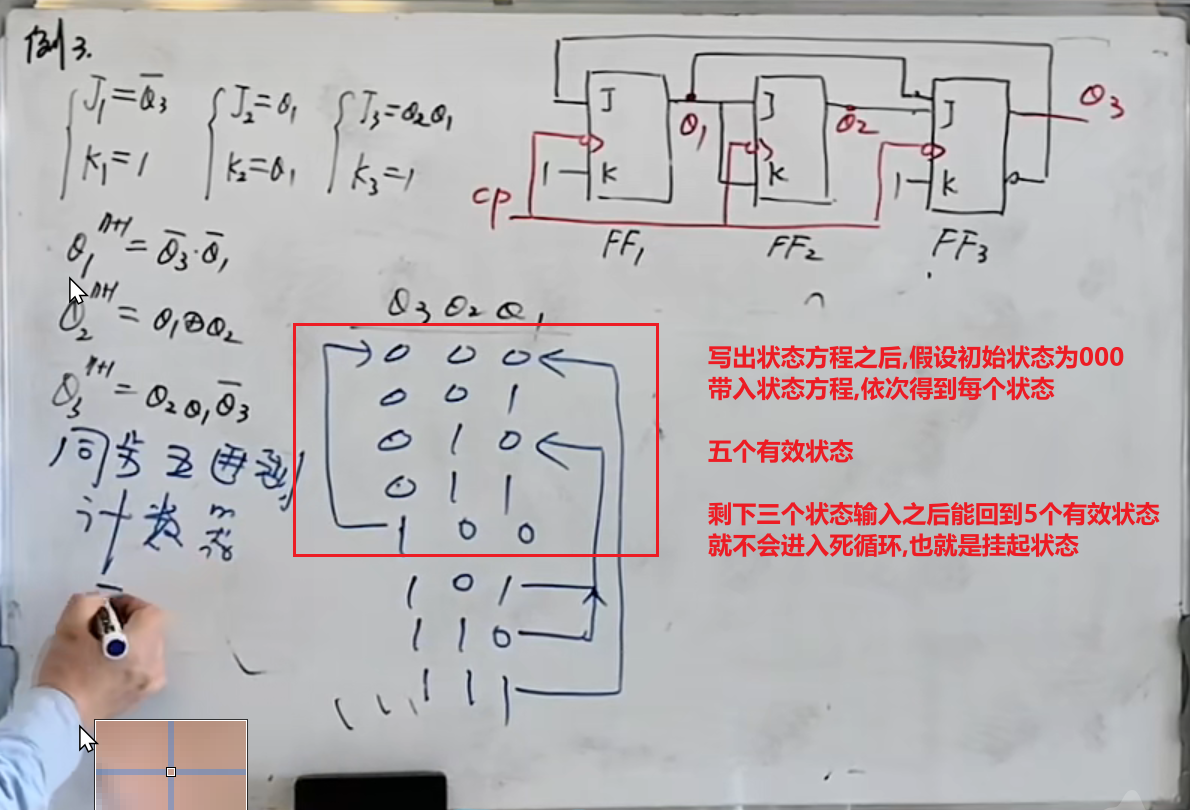 例3.
J₁=Q̅₃
K₁=1
J₂=Q₁
K₂=Q₁
J₃=Q₂Q₁
K₃=1
Q₁ⁿ⁺¹=Q̅₃·Q̅₁
Q₂ⁿ⁺¹=Q₁⊕Q₂
Q₃ⁿ⁺¹=Q₂Q₁Q̅₃
同步五进制
计数器
J
1 K
Q₁
J
K
Q₂
J
1 K
Q₃
CP
FF₁ FF₂ FF₃
Q₃ Q₂ Q₁
0 0 0
0 0 1
0 1 0
0 1 1
1 0 0
1 0 1
1 1 0
1 1 1
写出状态方程之后,假设初始状态为000
带入状态方程,依次得到每个状态
五个有效状态
剩下三个状态输入之后能回到5个有效状态
就不会进入死循环,也就是挂起状态